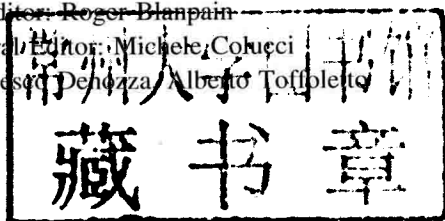 ditor: Roger Blanpain
al Editor: Michele Colucci
esco Denozza, Alberto Toffoletto
常州大学图书馆
藏书章